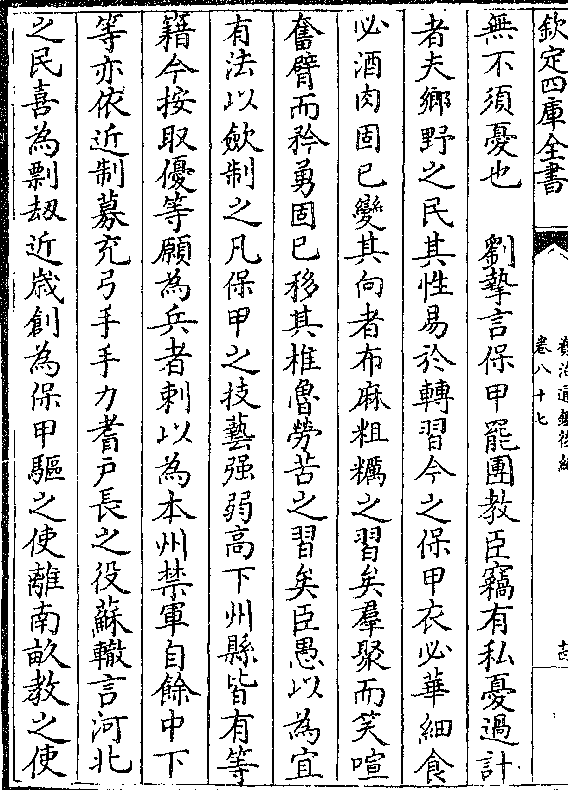 欽定四庫全書
資治通鑑後編
卷八十七
無不須憂也　劉摯言保甲罷團教臣竊有私憂過計
者夫鄉野之民其性易於轉習今之保甲衣必華細食
必酒肉固已變其向者布麻粗糲之習矣羣聚而笑喧
奮臂而矜勇固已移其椎魯勞苦之習矣臣愚以為宜
有法以歛制之凡保甲之技藝强弱高下州縣皆有等
籍今按取優等願為兵者刺以為本州禁軍自餘中下
等亦依近制募充弓手手力耆戸長之役蘇轍言河北
之民喜為剽刼近歲創為保甲驅之使離南畝教之使